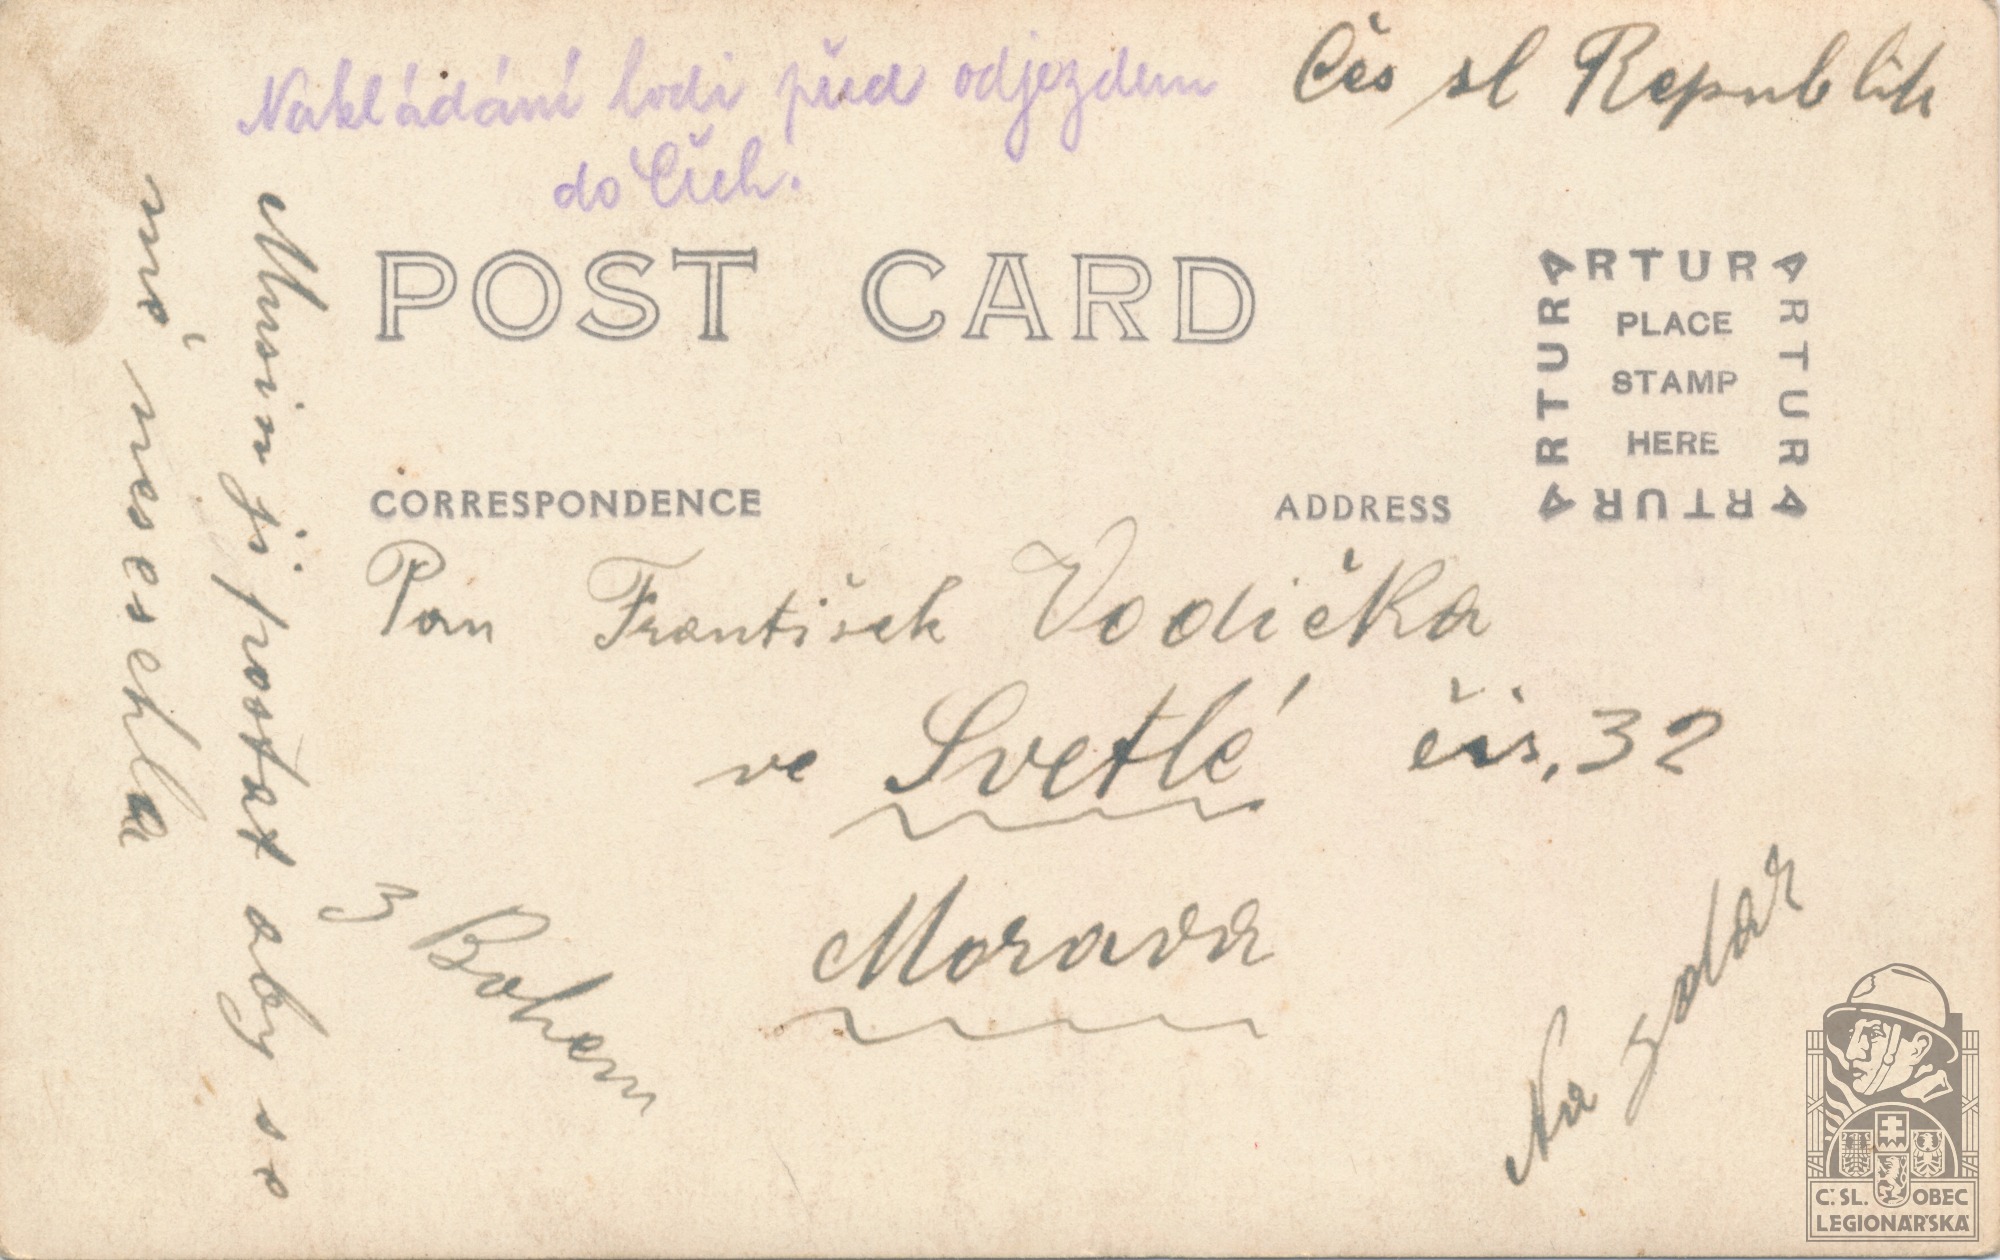 Nakládání lodi před odjezdem
do Čech.
Čes sl Republik
POST CARD
ARTURA
ARTURA
ARTURA
ARTURA
PLACE
STAMP
HERE
CORRESPONDENCE
ADDRESS
Pan František Vodička
ve Svetlé čis. 32
Morava
Na zdar
z Bohem
Musim ji postat aby so
mě nesechla
Č. SL. OBEC
LEGIONÁŘSKÁ